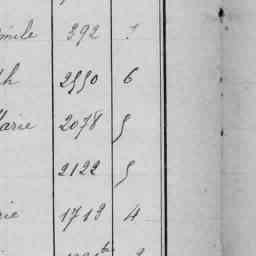 mile 392 1
th 2550 6
Marie 2078 5
2122 5
rie 1713 4